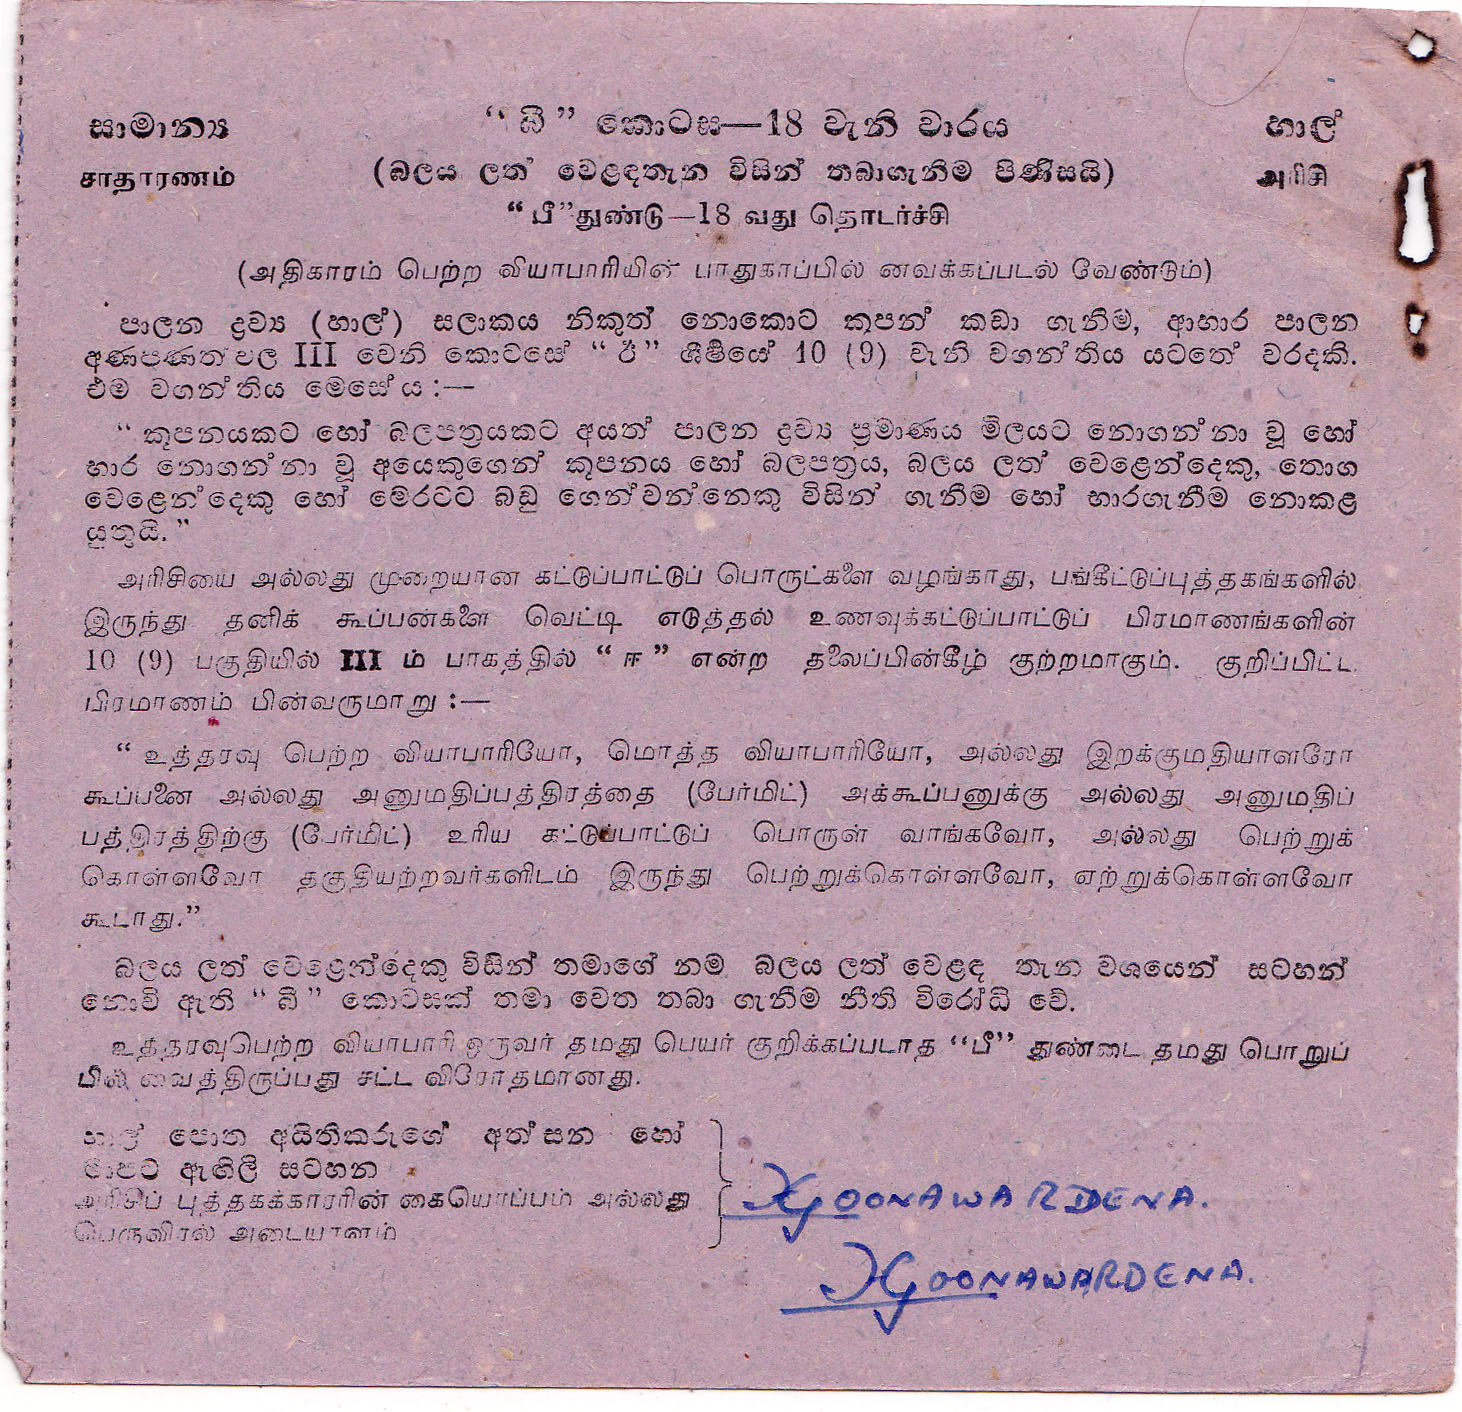 සාමාන්‍ය “ බී ” කොටස—18 වැනි වාරය හාල්
சாதாரணம் (බලය ලත් වෙළඳතැන විසින් තබාගැනීම පිණිසයි) அரிசி
“ பீ ” துண்டு—18 வது தொடர்ச்சி
(அதிகாரம் பெற்ற வியாபாரியின் பாதுகாப்பில் வைக்கப்படல் வேண்டும்)
පාලන ද්‍රව්‍ය (හාල්) සලාකය නිකුත් නොකොට කූපන් කඩා ගැනීම, ආහාර පාලන
අණපණත්වල III වෙනි කොටසේ “ ඊ ” ශීර්ෂයේ 10 (9) වැනි වගන්තිය යටතේ වරදකි.
එම වගන්තිය මෙසේය :—
“ කූපනයකට හෝ බලපත්‍රයකට අයත් පාලන ද්‍රව්‍ය ප්‍රමාණය මිලයට නොගන්නා වූ හෝ
භාර නොගන්නා වූ අයෙකුගෙන් කූපනය හෝ බලපත්‍රය, බලය ලත් වෙළෙන්දෙකු, තොග
වෙළෙන්දෙකු හෝ මේරටට බඩු ගෙන්වන්නෙකු විසින් ගැනීම හෝ භාරගැනීම නොකළ
යුතුයි.”
அரிசியை அல்லது முறையான கட்டுப்பாட்டுப் பொருட்களை வழங்காது, பங்கீட்டுப்புத்தகங்களில்
இருந்து தனிக் கூப்பன்களை வெட்டி எடுத்தல் உணவுக்கட்டுப்பாட்டுப் பிரமாணங்களின்
10 (9) பகுதியில் III ம் பாகத்தில் “ ஈ ” என்ற தலைப்பின்கீழ் குற்றமாகும். குறிப்பிட்ட
பிரமாணம் பின்வருமாறு :—
“ உத்தரவு பெற்ற வியாபாரியோ, மொத்த வியாபாரியோ, அல்லது இறக்குமதியாளரோ
கூப்பனை அல்லது அனுமதிப்பத்திரத்தை (பேர்மிட்) அக்கூப்பனுக்கு அல்லது அனுமதிப்
பத்திரத்திற்கு (பேர்மிட்) உரிய கட்டுப்பாட்டுப் பொருள் வாங்கவோ, அல்லது பெற்றுக்
கொள்ளவோ தகுதியற்றவர்களிடம் இருந்து பெற்றுக்கொள்ளவோ, ஏற்றுக்கொள்ளவோ
கூடாது.”
බලය ලත් වෙළෙන්දෙකු විසින් තමාගේ නම බලය ලත් වෙළඳ තැන වශයෙන් සටහන්
නොවී ඇති “ බී ” කොටසක් තමා වෙත තබා ගැනීම නීති විරෝධී වේ.
உத்தரவுபெற்ற வியாபாரி ஒருவர் தமது பெயர் குறிக்கப்படாத “பீ” துண்டை தமது பொறுப்
பில் வைத்திருப்பது சட்ட விரோதமானது.
හාල් පොත අයිතිකරුගේ අත්සන හෝ
මාපට ඇඟිලි සටහන
அரிசிப் புத்தகக்காரரின் கையொப்பம் அல்லது
பெருவிரல் அடையாளம்
GOONAWARDENA.
GOONAWARDENA.